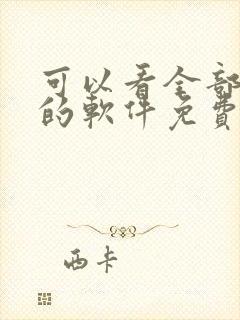 可以看全部
的軟件免費
西卡